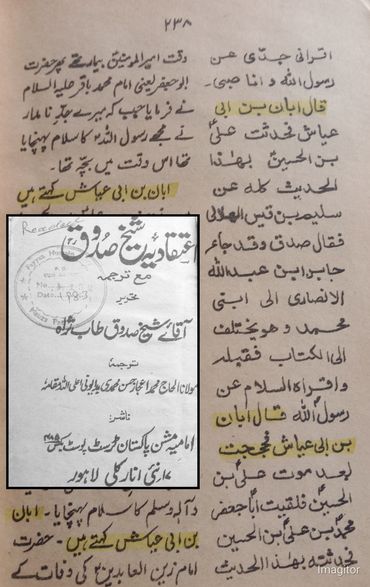 ۲۳۸
اقرانی جدّی عن
رسول اللہ و انا صبی۔
قال ابان بن ابی
عیاش فحدثت علیؑ
بن الحسینؑ بھٰذا
الحدیث کلہ عن
سلیم بن قیس الھلالی
فقال صدق وقد جاء
جابر ابن عبداللہ
الانصاری الی ابنی
محمد و ھو یختلف
الی الکتاب فقبلہ
و اقراہ السلام عن
رسول اللہؐ قال ابان
بن ابی عیاش فحججت
بعد موت علی بن
الحسینؑ فلقیت اباجعفر
محمدؑ بن علیؑ بن الحسین
فحدثتہ بھٰذا الحدیث
وقت امیر المومنینؑ بیمار تھے پھر حضرت
ابوجعفر یعنی امام محمد باقر علیہ السلام
نے فرمایا جب کہ میرے جد نامدار
نے مجھے رسول اللہؐ کا سلام پہنچایا
تھا اس وقت میں بچّہ تھا۔
ابان بن ابی عیاش کہتے ہیں
اعتقادیہ شیخ صدوقؒ
مع ترجمہ
تحریر
آقائے شیخ صدوق طاب ثراہ
ترجمہ
مولانا الحاج محمد اعجاز حسن محمدی بدایونی اعلی اللہ مقامہ
ناشر:
امامیہ مشن پاکستان ٹرسٹ پوسٹ بکس
۱۷ / نئی انار کلی لاہور
و آلہ وسلم کا سلام پہنچایا۔ ابان
بن ابی عیاش کہتے ہیں۔ حضرت
امام زین العابدینؑ کی وفات کے
Imagitor